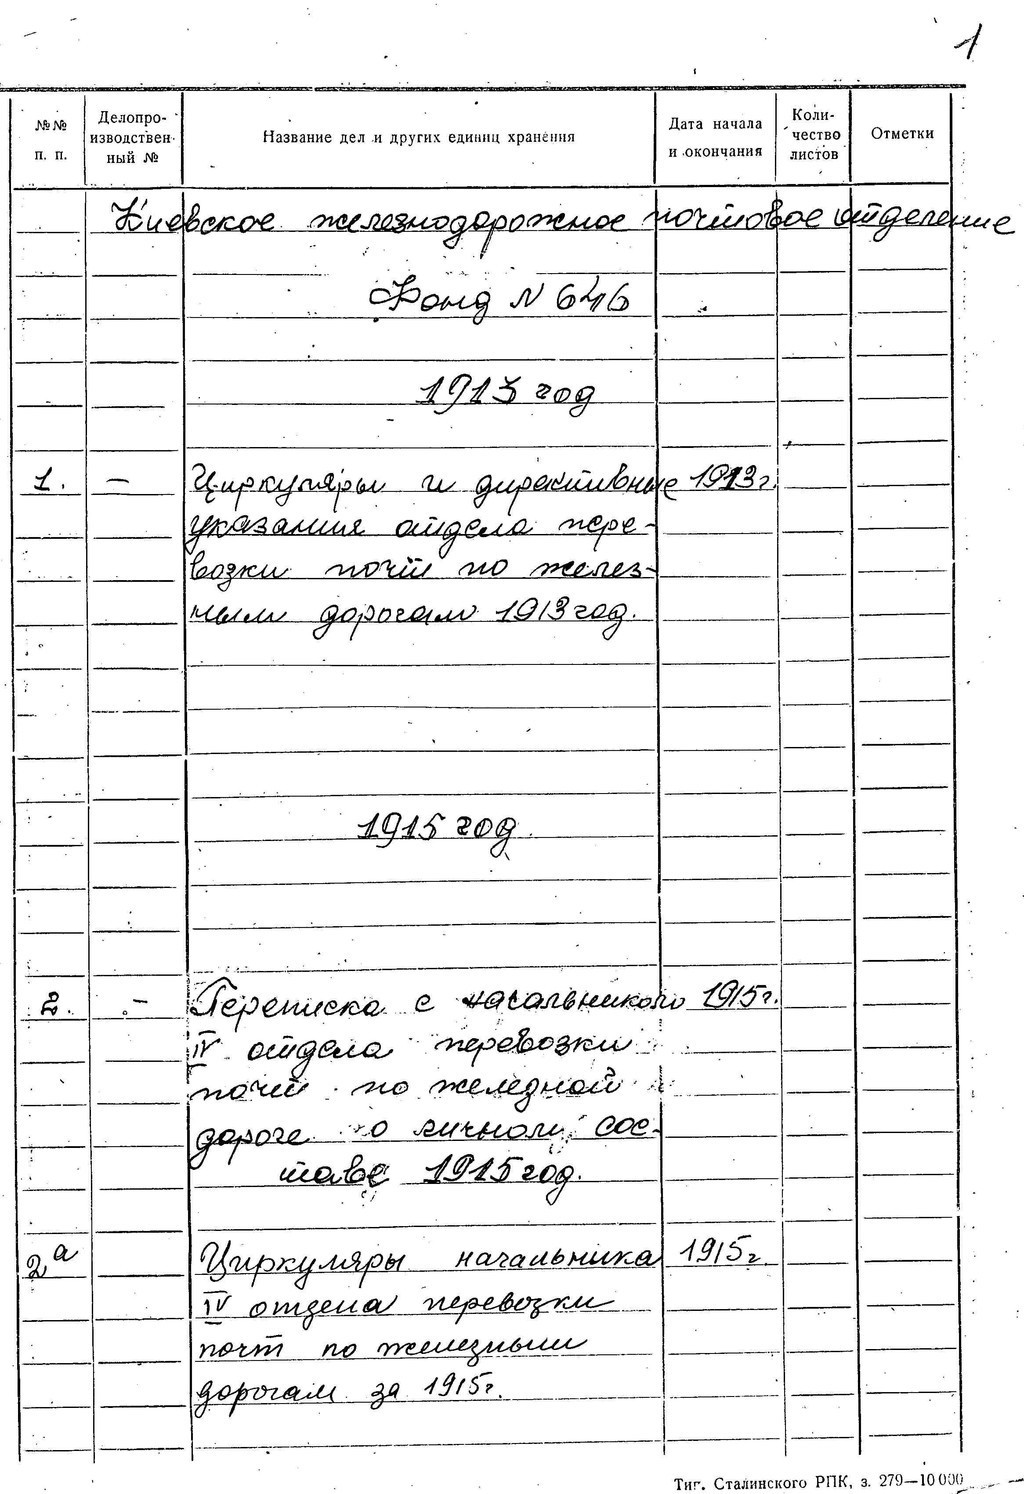 1
№№ п. п. Делопро-изводствен-ный № Название дел и других единиц хранения Дата начала и окончания Коли-чество листов Отметки
Киевское железнодорожное почтовое отделение
Фонд N 646
1913 год
1. — Циркуляры и директивные 1913 г.
указания отдела пере-
возки почт по желез-
ным дорогам 1913 год.
1915 год
2. — Переписка с начальником 1915 г.
IV отдела перевозки
почт по железной
дороге о личном сос-
таве 1915 год.
2а Циркуляры начальника 1915 г.
IV отдела перевозки
почт по железным
дорогам за 1915 г.
Тип. Сталинского РПК, з. 279—10 000